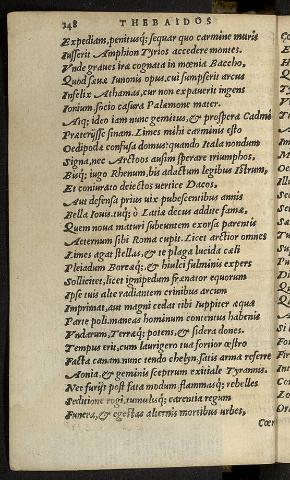 248 THEBAIDOS
Expediam, penitusq; sequar quo carmine muris
Iusserit Amphion Tyrios accedere montes.
Vnde graues iræ cognata in mœnia Baccho,
Quod sæuæ Iunonis opus, cui sumpserit arcus
Infelix Athamas, cur non expauerit ingens
Ionium, socio casura Palæmone mater.
Atq; ideo iam nunc gemitus, & prospera Cadmi
Præterijsse sinam. Limes mihi carminis esto
Oedipodæ confusa domus: quando Itala nondum
Signa, nec Arctoos ausim sperare triumphos,
Bisq; iugo Rhenum, bis adactum legibus Istrum,
Et coniurato deiectos uertice Dacos,
Aut defensa prius uix pubescentibus annis
Bella Iouis. tuq; ô Latiæ decus addite famæ,
Quem noua maturi subeuntem exorsa parentis
Aeternum sibi Roma cupit. Licet arctior omnes
Limes agat stellas, & te plaga lucida cæli
Pleiadum Boreæq; & hiulci fulminis expers
Sollicitet, licet ignipedum frænator equorum
Ipse tuis alte radiantem crinibus arcum
Imprimat, aut magni cedat tibi Iuppiter æqua
Parte poli, maneas hominum contentus habenis
Vndarum, Terræq; potens, & sidera dones.
Tempus erit, cum laurigero tua fortior œstro
Facta canam. nunc tendo chelyn. satis arma referre
Aonia, & geminis sceptrum exitiale Tyrannis.
Nec furijs post fata modum, flammasq; rebelles
Seditione rogi, tumulisq; carentia regum
Funera, & egestas alternis mortibus urbes,
Cœr